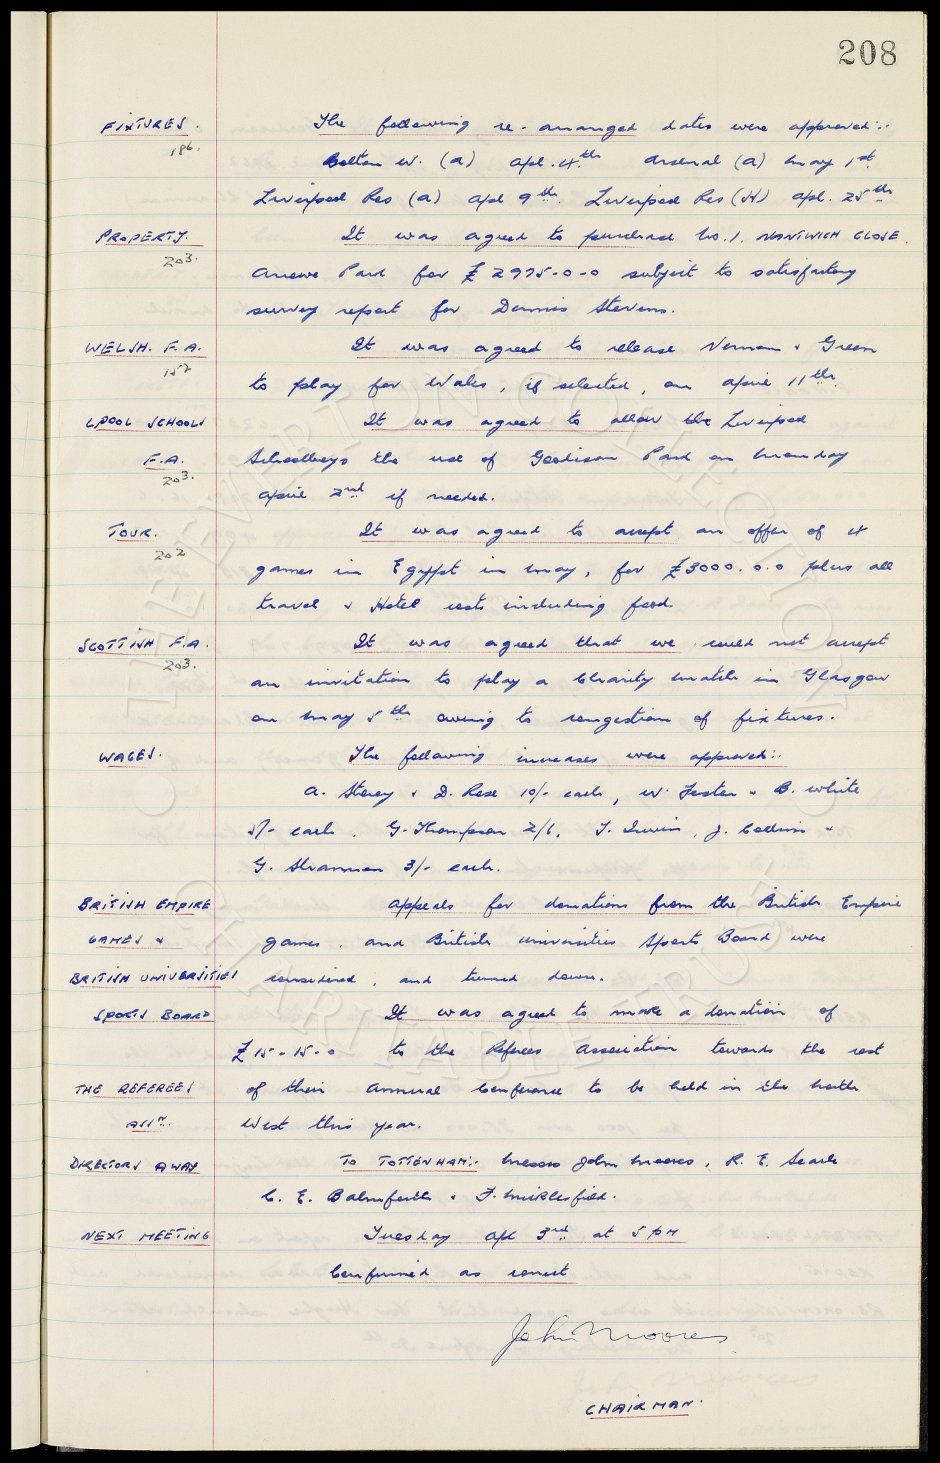 208
FIXTURES. The following re-arranged dates were approved:-
196. Bolton W. (a) Apl. 4th Arsenal (a) May 1st
Liverpool Res (a) Apl 9th. Liverpool Res (H) Apl. 25th
PROPERTY. It was agreed to purchase No.1. NANTWICH CLOSE.
203. Arrowe Park for £2975-0-0 subject to satisfactory
survey report for Dennis Stevens.
WELSH. F.A. It was agreed to release Vernon & Green
152 to play for Wales, if selected, on April 11th.
LPOOL SCHOOLS It was agreed to allow the Liverpool
F.A. Schoolboys the use of Goodison Park on Monday
203. April 2nd if needed.
TOUR. It was agreed to accept an offer of 4
202 games in Egypt in May, for £3000.0.0 plus all
travel & Hotel costs including food.
SCOTTISH F.A. It was agreed that we could not accept
203. an invitation to play a Charity match in Glasgow
on May 5th owing to congestion of fixtures.
WAGES. The following increases were approved:-
A. Storey & D. Rose 10/- each, W. & B. White
5/- each, G. Thompson 2/6, T. Irwin, J. Collins &
G. Sharman 3/- each.
BRITISH EMPIRE Appeals for donations from the British Empire
GAMES & games, and British Universities Sports Board were
BRITISH UNIVERSITIES considered, and turned down.
SPORTS BOARD It was agreed to make a donation of
£15-15-0 to the Referees Association towards the cost
THE REFEREES of their Annual Conference to be held in the North
ASSN. West this year.
DIRECTORS AWAY TO TOTTENHAM:- Messrs John Moores, R. E. Searle
C. E. Balmforth & F. Micklesfield.
NEXT MEETING Tuesday Apl 3rd at 5 PM
Confirmed as correct
John Moores
CHAIRMAN.
THE EVERTON COLLECTION
CHARITABLE TRUST